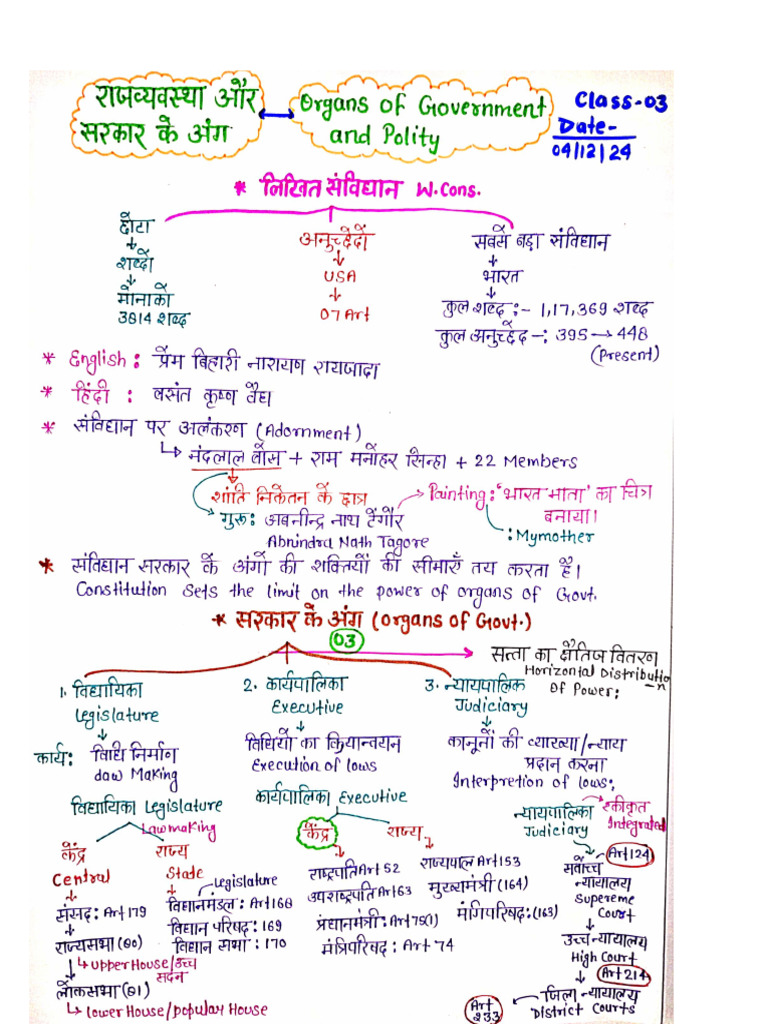 राजव्यवस्था और
सरकार के अंग
Organs of Government
and Polity
Class-03
Date-
04/12/24
* लिखित संविधान W.Cons.
छोटा
शब्दों
मोनाको
3814 शब्द
अनुच्छेदों
USA
07 Art
सबसे बड़ा संविधान
भारत
कुल शब्द :- 1,17,369 शब्द
कुल अनुच्छेद -: 395 → 448
(Present)
* English : प्रेम बिहारी नारायण रायजादा
* हिंदी : वसंत कृष्ण वैद्य
* संविधान पर अलंकरण (Adornment)
↳ नंदलाल बोस + राम मनोहर सिन्हा + 22 Members
शांति निकेतन के छात्र
गुरु: अबनीन्द्र नाथ टैगोर
Abnindra Nath Tagore
Painting: 'भारत माता' का चित्र
बनाया।
: Mymother
* संविधान सरकार के अंगों की शक्तियों की सीमाएँ तय करता है।
Constitution Sets the limit on the power of organs of Govt.
* सरकार के अंग (Organs of Govt.)
03
सत्ता का क्षैतिज वितरण
Horizontal Distributio
-n
Of Power:
1. विधायिका
Legislature
2. कार्यपालिका
Executive
3. न्यायपालिक
Judiciary
कार्य:
विधि निर्माण
daw Making
विधियों का क्रियान्वयन
Execution of lows
कानूनों की व्याख्या/न्याय
प्रदान करना
Interpretion of lows:
विधायिका Legislature
Lawmaking
केंद्र
Central
संसद: Art 179
राज्यसभा (80)
↳ upper House/उच्च
सदन
लोकसभा (81)
↳ lower House/popular House
राज्य
State
Legislature
विधानमंडल: Art 168
विधान परिषद: 169
विधान सभा : 170
कार्यपालिका Executive
केंद्र
राष्ट्रपति Art 52
उपराष्ट्रपति Art 63
प्रधानमंत्री: Art 75(1)
मंत्रिपरिषद: Art 74
राज्य
राज्यपाल Art 153
मुख्यमंत्री (164)
मंगिपरिषद: (163)
न्यायपालिका
Judiciary
एकीकृत
Integrated
Art 124
सर्वोच्च
न्यायालय
Supereme
Court
उच्च न्यायालय
High Court
Art 214
जिला न्यायालय
District Courts
Art
233